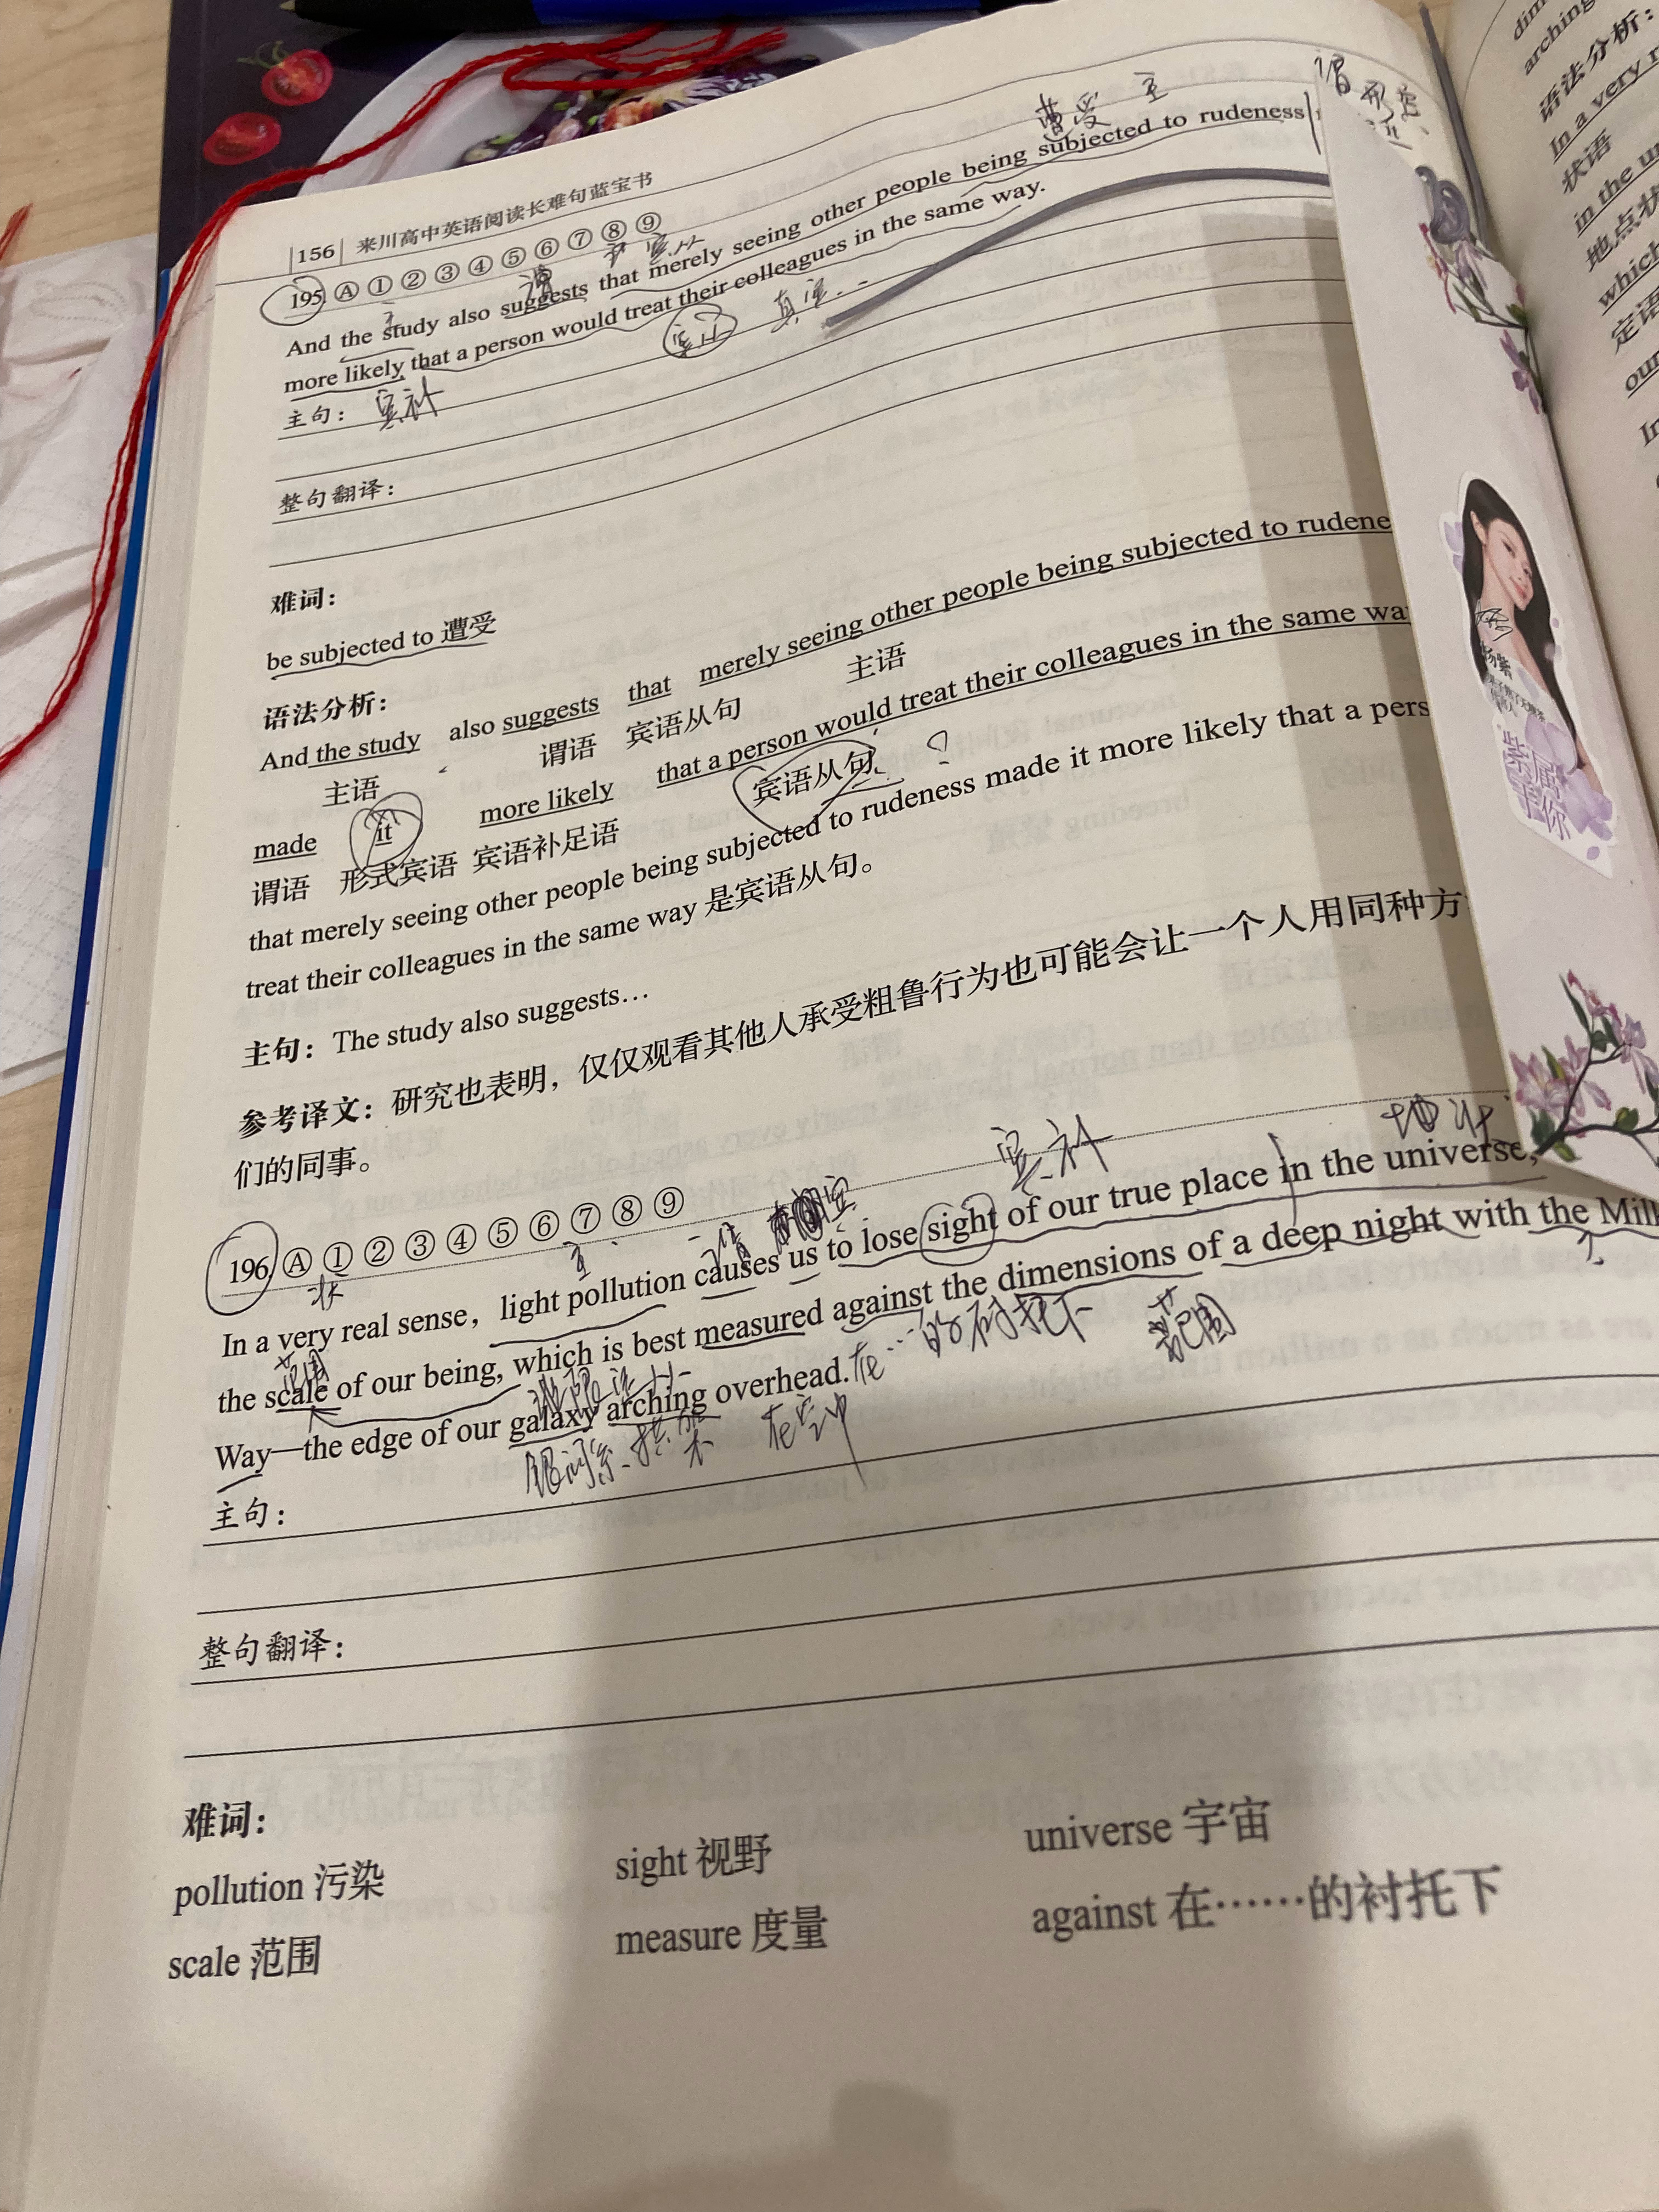 |156| 来川高中英语阅读长难句蓝宝书
195. Ⓐ ① ② ③ ④ ⑤ ⑥ ⑦ ⑧ ⑨
遭受 主
谓
主 谓 宾从
And the study also suggests that merely seeing other people being subjected to rudeness
more likely that a person would treat their colleagues in the same way.
宾从 真宾
主句： 宾补
整句翻译：
难词：
be subjected to 遭受
语法分析：
And the study also suggests that merely seeing other people being subjected to rudene
主语 谓语 宾语从句 主语
made it more likely that a person would treat their colleagues in the same wa
谓语 形式宾语 宾语补足语 宾语从句 ?
that merely seeing other people being subjected to rudeness made it more likely that a pers
treat their colleagues in the same way 是宾语从句。
主句：The study also suggests…
参考译文：研究也表明，仅仅观看其他人承受粗鲁行为也可能会让一个人用同种方
们的同事。
196. Ⓐ ① ② ③ ④ ⑤ ⑥ ⑦ ⑧ ⑨
状 主 谓 宾 宾补 地状
In a very real sense, light pollution causes us to lose sight of our true place in the universe,
范围 在…的衬托下 范围
the scale of our being, which is best measured against the dimensions of a deep night with the Mil
Way—the edge of our galaxy arching overhead.
银河系 拱架 在空中
主句：
整句翻译：
难词：
pollution 污染 sight 视野 universe 宇宙
scale 范围 measure 度量 against 在……的衬托下
dim
arching
语法分析：
In a very r
状语
in the un
地点状
which
定语
our
In
杨紫
紫属
你